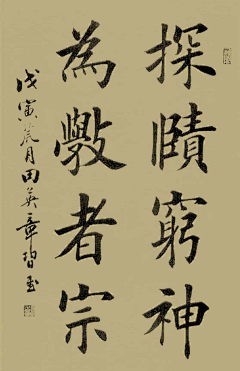 探賾窮神
為斅者宗
戊寅荒月田英章